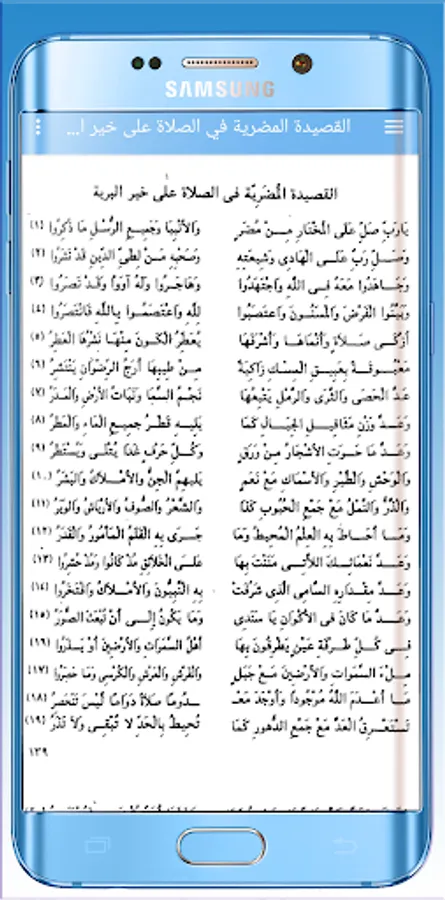 SAMSUNG
القصيدة المضرية في الصلاة على خير ا...
القصيدة المُضَريّة فى الصلاة على خير البرية
يَارَبِّ صَلِّ عَلَى الْمُخْتَارِ مِـنْ مُضَرٍ وَالأَنْبِيَا وَجَمِيعِ الرُّسْلِ مَا ذُكِرُوا (١)
وَصَلِّ رَبِّ عَلَـى الْهَادِى وَشِيعَتِهِ وَصَحْبِهِ مَـنْ لِطَىِّ الدِّينِ قَدْ نَشَرُوا (٢)
وَجَـاهَدُوا مَعَهُ فِـى اللَّهِ وَاجْتَهَدُوا وَهَاجَـرُوا وَلَهُ آوَوْا وَقَـدْ نَصَرُوا (٣)
وَبَيَّنُوا الْفَرْضَ وَالْمَسْنُـونَ وَاعْتَصَبُوا لِلَّهِ وَاعْتَصَمُـوا بِـاللَّهِ فَانْتَصَرُوا (٤)
أَزْكَـى صَـلاَةٍ وَأَنْمَاهَـا وَأَشْرَفَهَا يُعَطِّرُ الْكَـوْنَ مِنْهَـا نَشْرُهَا الْعَطِرُ (٥)
مَعْبُـوقَـةً بِعَبِيـقِ الْمِسْـكِ زَاكِيَةً مِـنْ طِيبِهَا أَرَجُ الرِّضْـوَانِ يَنْتَشِرُ (٦)
عَدَّ الْحَصَى وَالثَّرَى وَالرَّمْلِ يَتْبَعُهَا نَجْـمُ السَّمَا وَنَبَاتُ الأَرْضِ وَالْمَدَرُ (٧)
وَعَـدَّ وَزْنِ مَثَاقِيـلِ الْجِبَـالِ كَمَا يَلِيـهِ قَطْـرُ جَمِيـعِ الْمَـاءِ وَالْمَطَرُ (٨)
وَعَـدَّ مَا حَـوَتِ الأَشْجَارُ مِـنْ وَرَقٍ وَكُـلِّ حَرْفٍ غَدَا يُتْلَـى وَيُسْتَطَرُ (٩)
وَالْوَحْشِ وَالطَّيْرِ وَالأَسْمَاكِ مَعْ نَعَمٍ يَلِيهِمُ الْجِنُّ وَالأَمْـلاَكُ وَالْبَشَرُ (١٠)
وَالذَّرُّ وَالنَّمْلُ مَعْ جَمْعِ الْحُبُوبِ كَذَا وَالشَّعْرُ وَالصُّوفُ وَالأَرْيَاشُ وَالْوَبَرُ (١١)
وَمَـا أَحَـاطَ بِهِ الْعِلْمُ الْمُحِيطُ وَمَا جَـرَى بِهِ الْقَلَمُ الْمَأْمُورُ وَالْقَدَرُ (١٢)
وَعَـدَّ نَعْمَائِـكَ اللاَّتِـى مَنَنْتَ بِهَا عَلَـى الْخَلاَئِقِ مُذْ كَانُوا وَمُذْ حُشِرُوا (١٣)
وَعَـدَّ مِقْدَارِهِ السَّامِى الَّذِى شَرُفَتْ بِهِ النَّبِيُّونَ وَالأَمْـلاَكُ وَافْتَخَرُوا (١٤)
وَعَـدَّ مَا كَانَ فِى الأَكْوَانِ يَا سَنَدِى وَمَا يَكُونُ إِلَـى أَنْ تُبْعَثَ الصُّوَرُ (١٥)
فِـى كُـلِّ طَرْفَةِ عَيْنٍ يَطْرِفُونَ بِهَا أَهْلُ السَّمَوَاتِ وَالأَرْضِينَ أَوْ يَـذَرُوا (١٦)
مِـلْءَ السَّمَوَاتِ وَالأَرْضِينَ مَـعْ جَبَلٍ وَالْفَرْشِ وَالْعَرْشِ وَالْكُرْسِى وَمَا حَصَرُوا (١٧)
مَـا أَعْـدَمَ اللَّهُ مَوْجُودًا وَأَوْجَدَ مَعْـ ـدُومًا صَلاَةً دَوَامًا لَيْسَ تَنْحَصِرُ (١٨)
تَسْتَغْـرِقُ الْعَدَّ مَعْ جَمْعِ الدُّهُورِ كَمَا تُحِيطُ بِالْحَدِّ لاَ تُبْقِـى وَلاَ تَذَرُ (١٩)
١٣٩